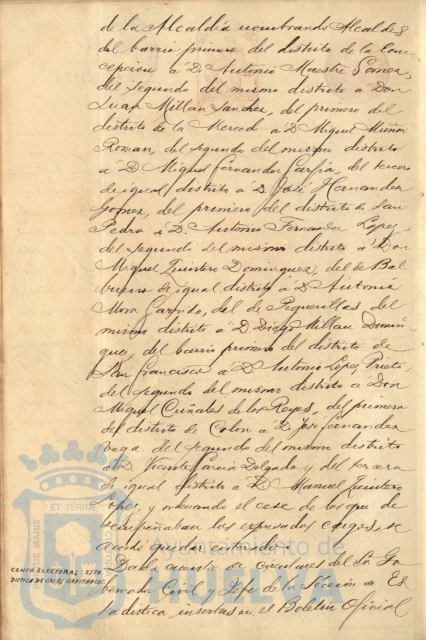 de la Alcaldía nombrando Alcaldes
del barrio primero del distrito de la Con-
cepcion á D. Antonio Maestre Gomez,
del segundo del mismo distrito á Don
Juan Millan Sanchez, del primero del
distrito de la Merced á D. Miguel Muñoz
Roman, del segundo del mismo distrito
á D. Miguel Fernandez Garfia, del tercero
de igual distrito á D. José Hernandez
Gomez, del primero del distrito de San
Pedro á D. Antonio Fernandez Lopez,
del segundo del mismo distrito á Don
Miguel Quintero Dominguez, del de Bal-
buena de igual distrito á D. Antonio
Mora Garrido, del de Peguerillas del
mismo distrito á D. Diego Millan Domin-
guez, del barrio primero del distrito de
San Francisco á D. Antonio Lopez Prieto,
del segundo del mismo distrito á Don
Miguel Cuñales de los Reyes, del primero
del distrito de Colon á D. José Fernandez
Vega, del segundo del mismo distrito
á D. Vicente Garcia Delgado y del tercero
de igual distrito á D. Manuel Quintero
Lopez, y ordenando el cese de los que de-
sempeñaban los expresados cargos, se
acordó quedar enterado.
CENSO ELECTORAL: ESTA-
DISTICA DE CASAS HABITABLES.
Dada cuenta de circulares del Sr. Go-
bernador Civil y Jefe de la Seccion de Es-
tadistica, insertas en el Boletin Oficial
ET TERRAE
PORTUS MARIS
Ayuntamiento de
HUELVA